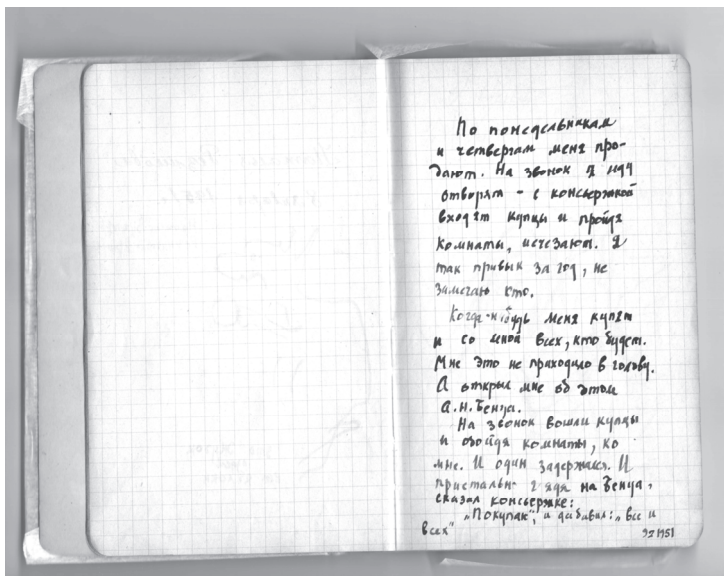 По понедельникам
и четвергам меня про-
дают. На звонок я иду
отворят - с консьержкой
входят купцы и пройдя
комнаты, исчезают. Я
так привык за год, не
замечаю кто.
Когда-нибудь меня купят
и со мной всех, кто будет.
Мне это не приходило в голову.
А открыл мне об этом
А.Н.Бенуа.
На звонок вошли купцы
и обойдя комнаты, ко
мне. И один задержался. И
пристально глядя на Бенуа,
сказал консьержке:
„Покупаю", и добавил: „все и
всех"
1951